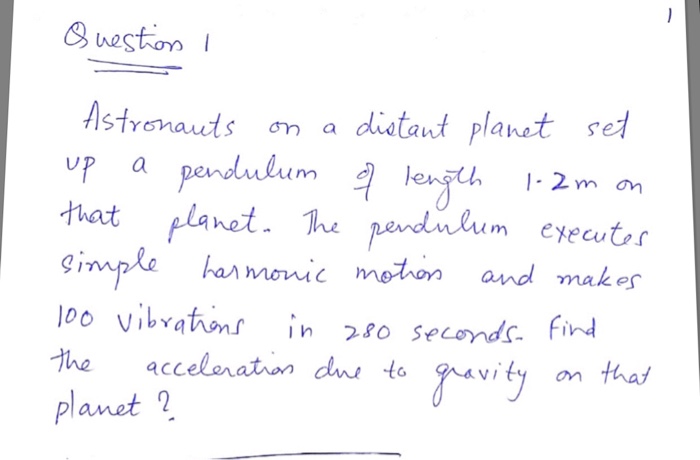 1
Question 1
Astronauts on a distant planet set
up a pendulum of length 1.2m on
that planet. The pendulum executes
simple harmonic motion and makes
100 vibrations in 280 seconds. Find
the acceleration due to gravity on that
planet ?